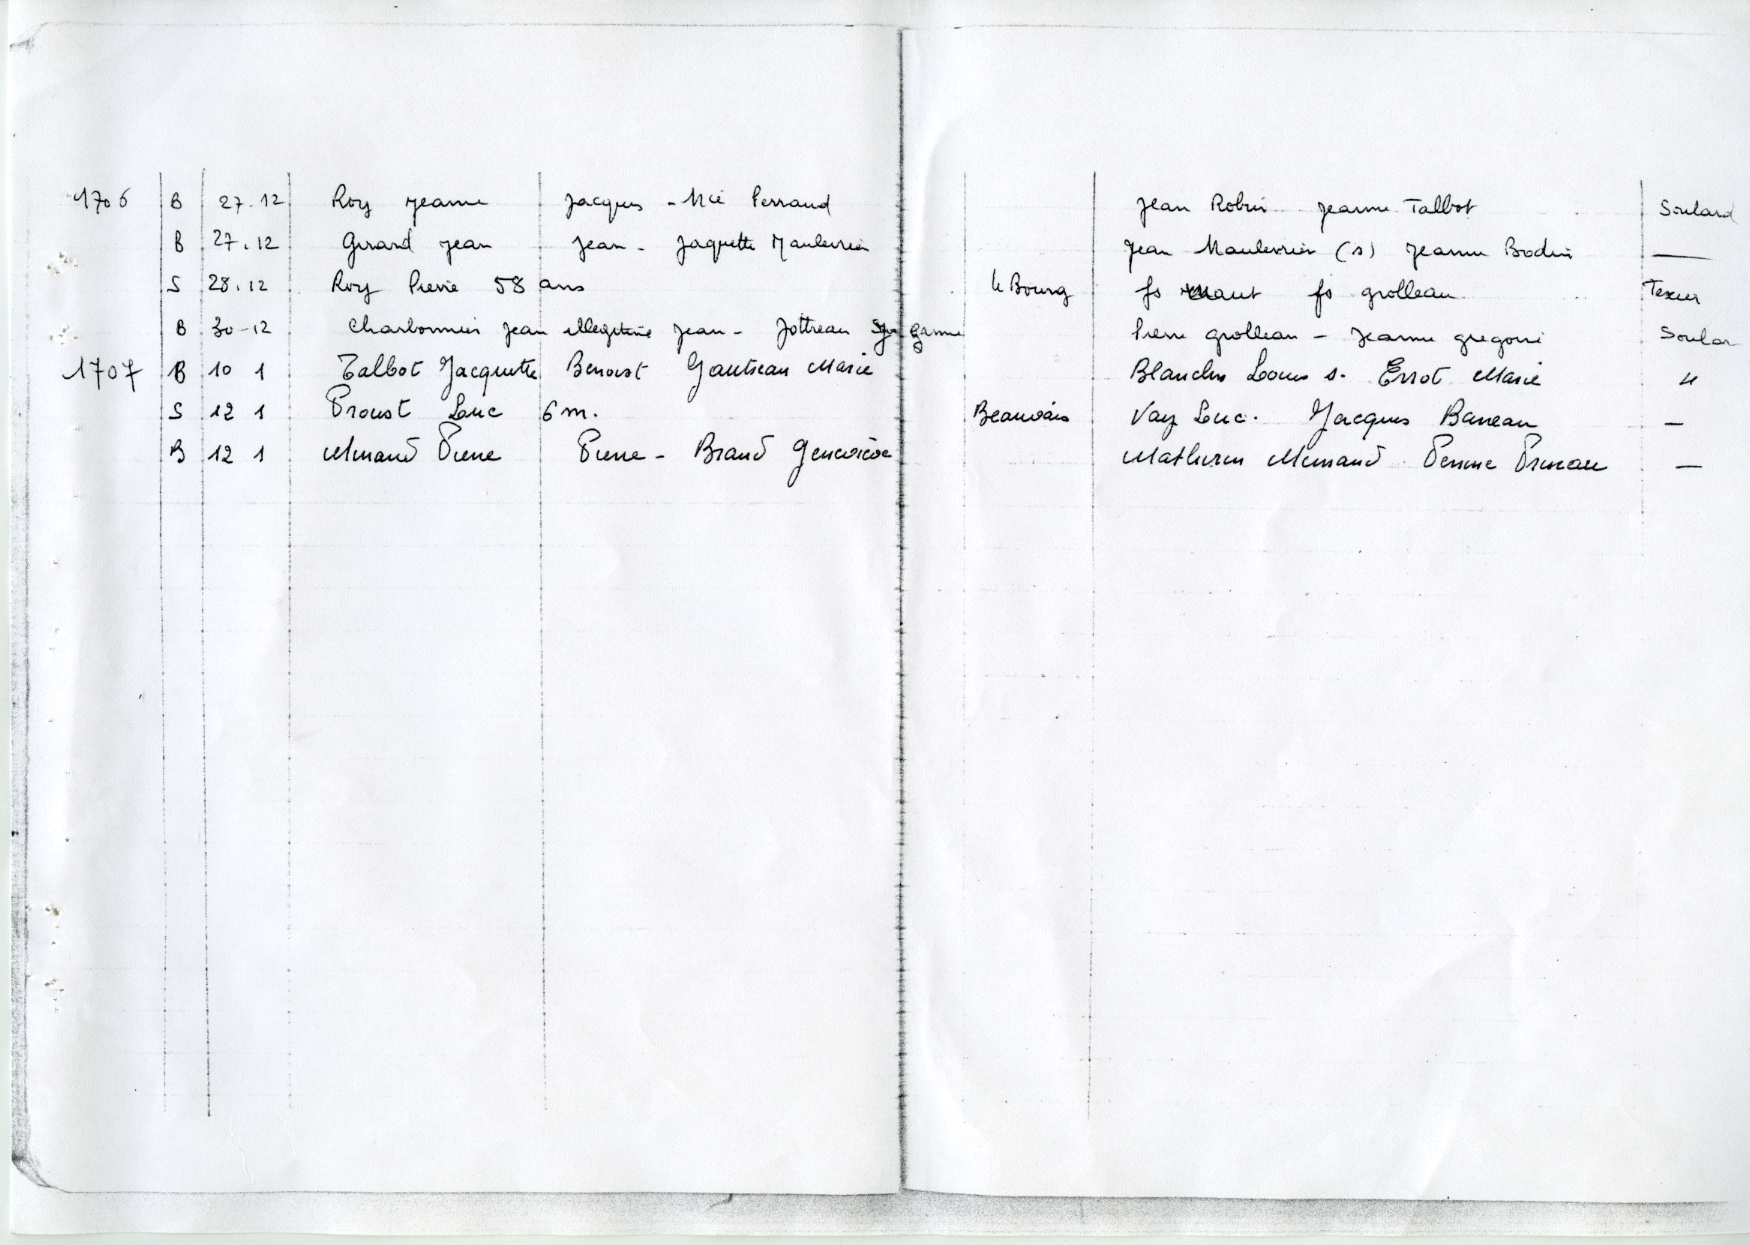 1706 B 27.12 Roy Jeanne Jacques - Mie Perraud Jean Robin Jeanne Talbot Soulard
B 27.12 Girard Jean Jean - Jaquette Maulevrier Jean Maulevrier (s) Jeanne Bodin —
S 28.12 Roy Pierre 58 ans le Bourg fs fs grolleau Texier
B 30-12 Charbonnier Jean illegitime Jean - Jottreau Pierre grolleau - Jeanne gregoire Soular
1707 B 10 1 Talbot Jacquette Benoist Gautreau Marie Blanchn Louis s. Errot Marie "
S 12 1 Proust Luc 6 m. Beauvais Vay Luc. Jacques Baneau —
B 12 1 Menard Pierre Pierre - Braud Geneviève Mathurin Menard Perrine —